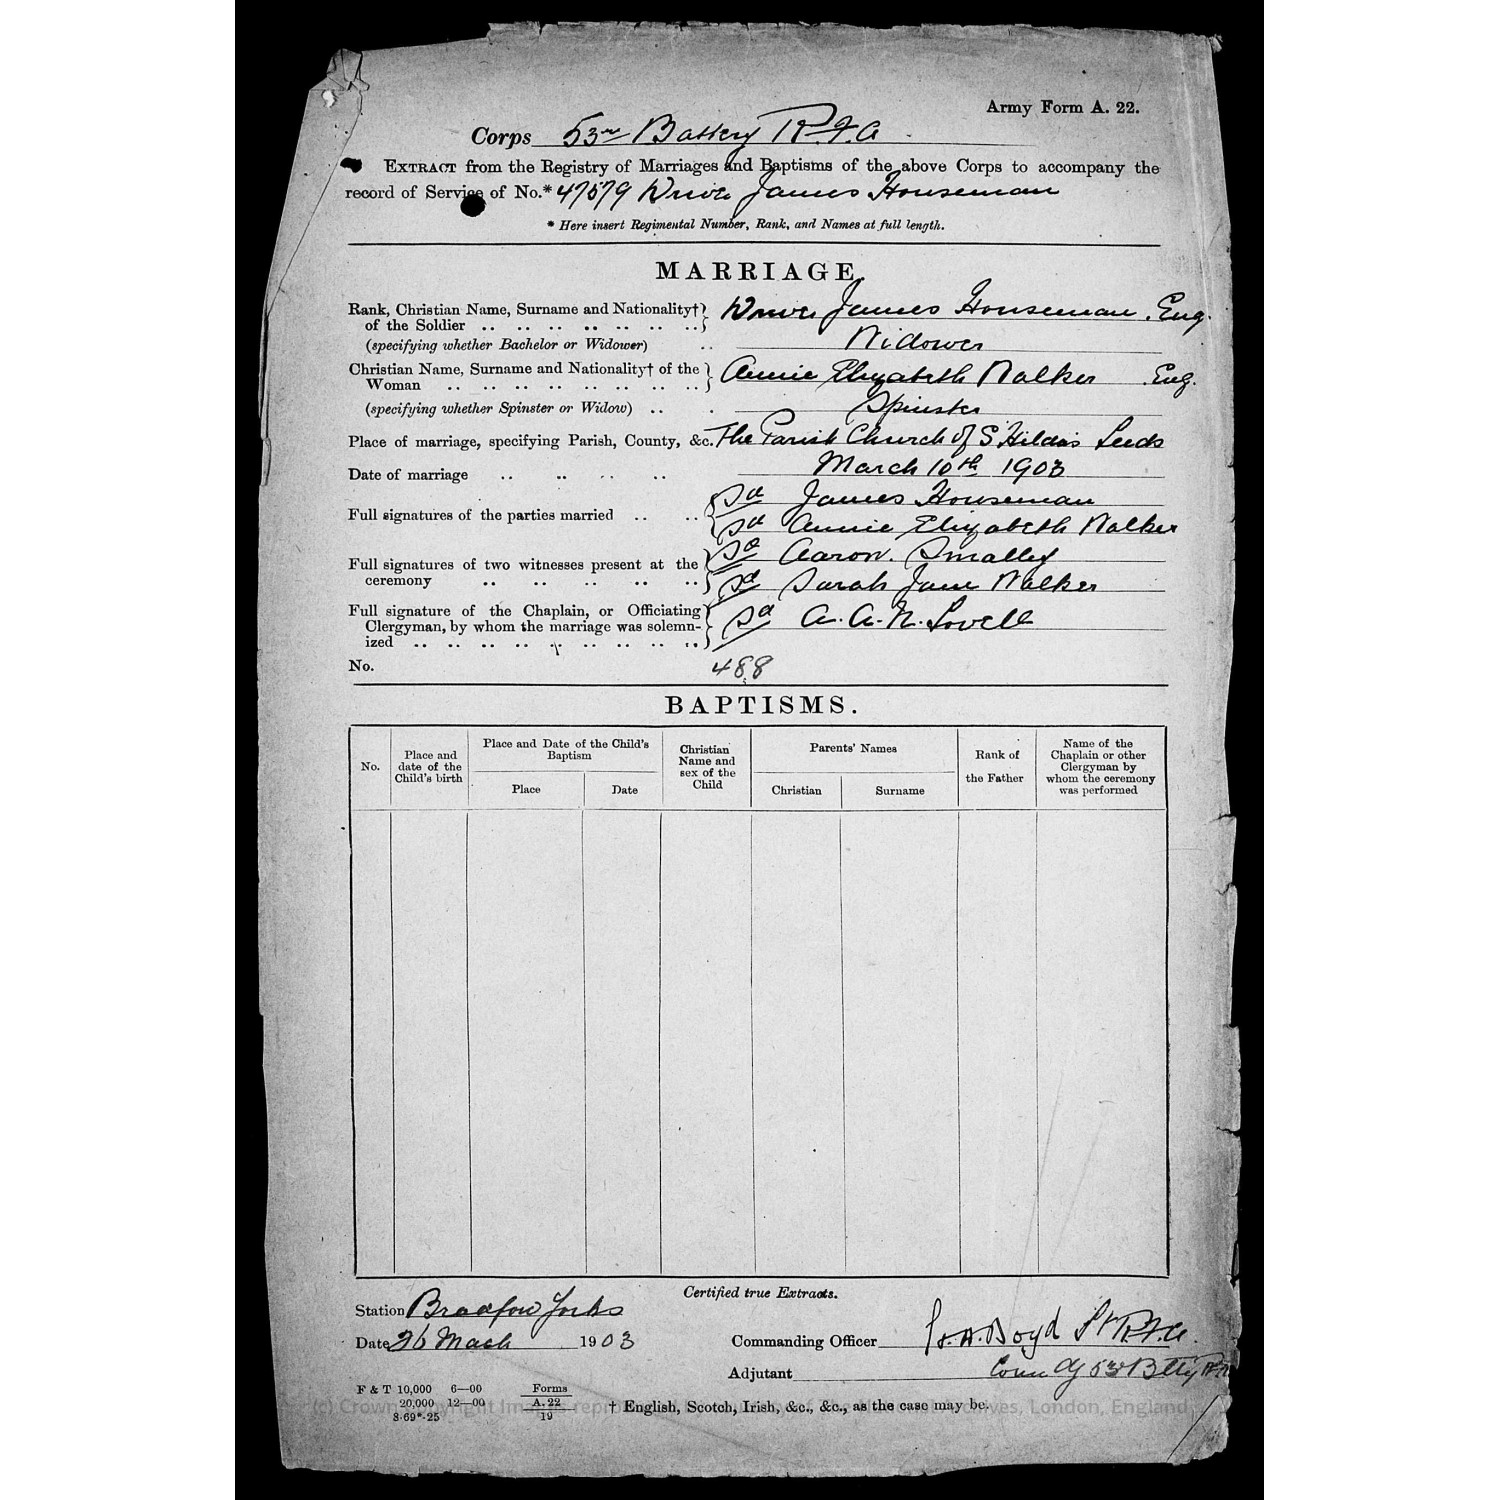 Army Form A. 22.
Corps 53rd Battery R.F.A.
EXTRACT from the Registry of Marriages and Baptisms of the above Corps to accompany the
record of Service of No.* 47579 Driver James Houseman
* Here insert Regimental Number, Rank, and Names at full length.
MARRIAGE.
Rank, Christian Name, Surname and Nationality† of the Soldier .. .. .. .. .. .. .. Driver James Houseman. Eng.
(specifying whether Bachelor or Widower) .. Widower
Christian Name, Surname and Nationality† of the Woman .. .. .. .. .. .. .. .. Annie Elizabeth Walker Eng.
(specifying whether Spinster or Widow) .. . Spinster
Place of marriage, specifying Parish, County, &c. The Parish Church of St Hilda's Leeds
Date of marriage .. .. .. .. March 10th 1903
Full signatures of the parties married .. .. sd James Houseman
sd Annie Elizabeth Walker
Full signatures of two witnesses present at the ceremony .. .. .. .. .. sd Aaron. Smalley
sd Sarah Jane Walker
Full signature of the Chaplain, or Officiating Clergyman, by whom the marriage was solemnized .. .. .. .. .. .. .. .. .. sd A. A. N. Lovell
No. 488
BAPTISMS.
No.
Place and date of the Child's birth
Place and Date of the Child's Baptism
Place
Date
Christian Name and sex of the Child
Parents' Names
Christian
Surname
Rank of the Father
Name of the Chaplain or other Clergyman by whom the ceremony was performed
Certified true Extracts.
Station Bradford Yorks
Date 26 March 1903
Commanding Officer H.A. Boyd Lt R.F.A.
Adjutant Comdg 53rd Btty R.F.A.
F & T 10,000 6—00
20,000 12—00
8·69*·25
Forms
A. 22
19
† English, Scotch, Irish, &c., &c., as the case may be.
(c) Crown Copyright Images reproduced by courtesy of The National Archives, London, England